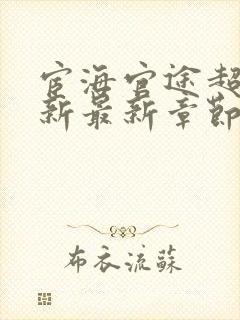 宦海官途超
新最新章節
布衣流蘇